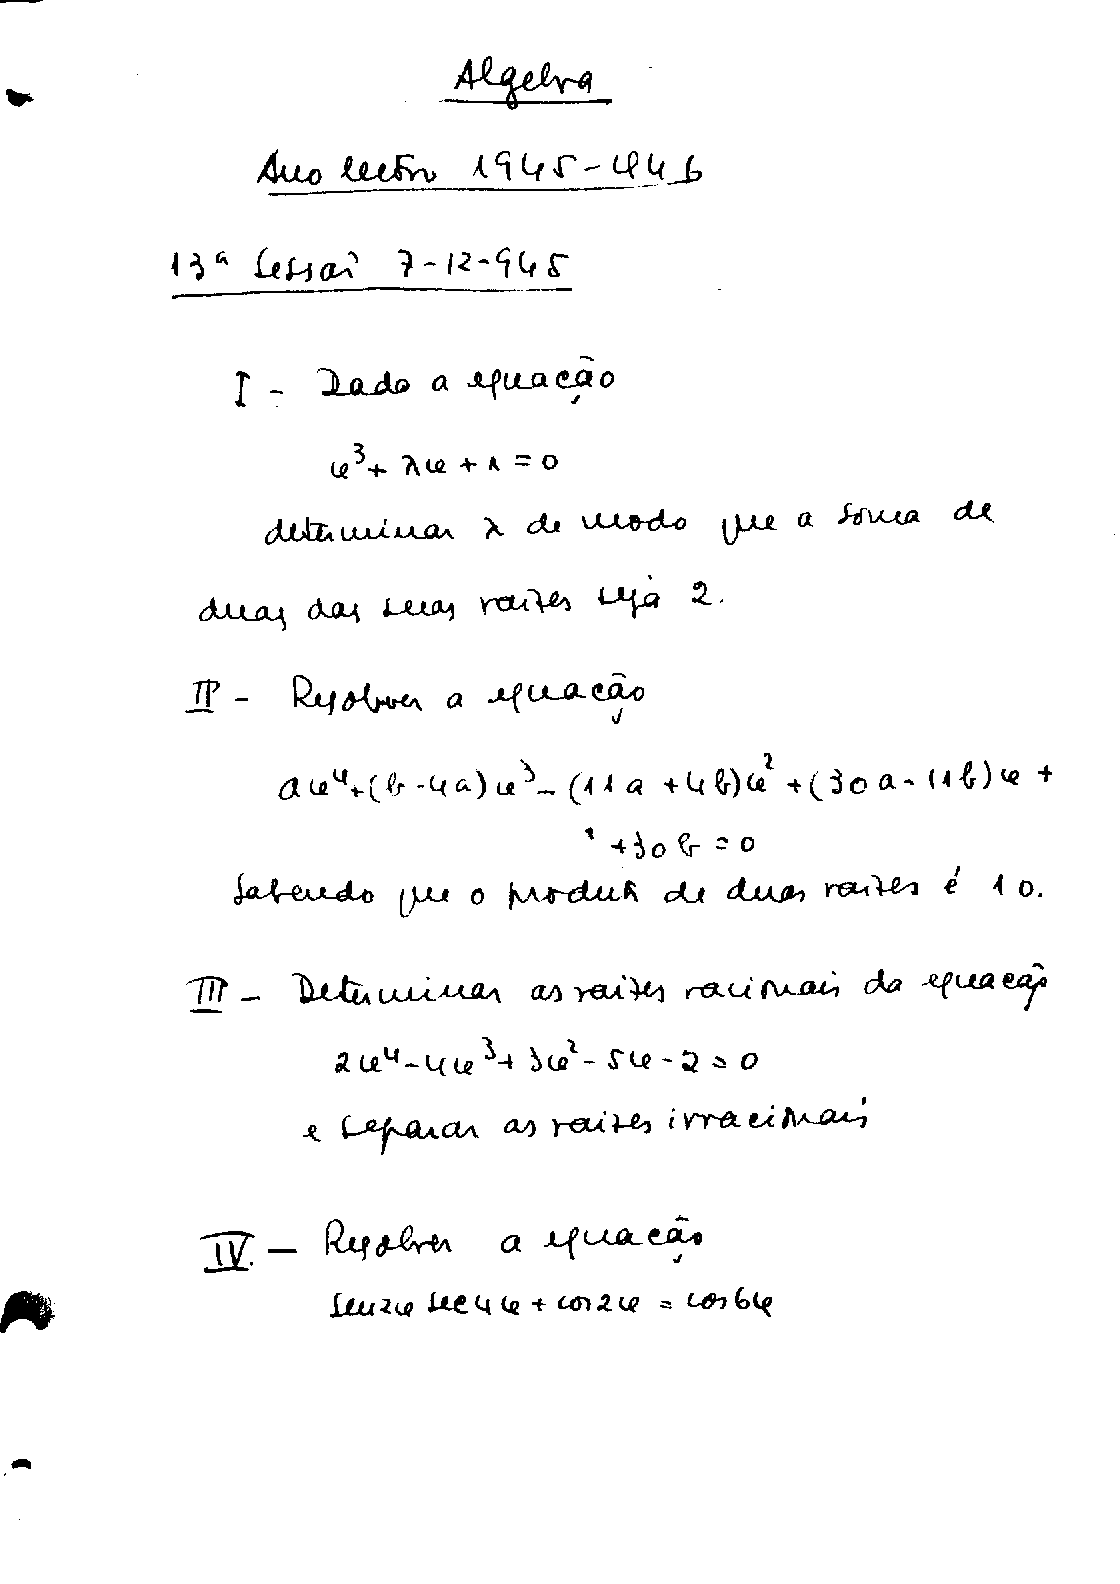 Algebra
Ano lectivo 1945-446
13ª Sessaõ 7-12-945
I - Dado a equação
x³ + λx + 1 = 0
determinar λ de modo que a soma de
duas das suas raizes seja 2.
II - Resolver a equação
ax⁴+(b-4a)x³-(11a+4b)x²+(30a-11b)x+
+30b=0
Sabendo que o produto de duas raizes é 10.
III - Determinar as raizes racionais da equação
2x⁴-4x³+3x²-5x-2=0
e separar as raizes irracionais
IV. - Resolver a equação
sen2x sec4x + cos2x = cos6x